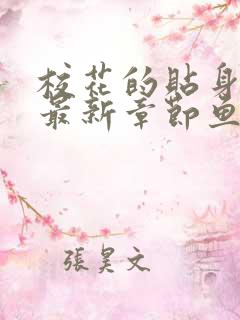 校花的貼身
最新章節魚
張昊文